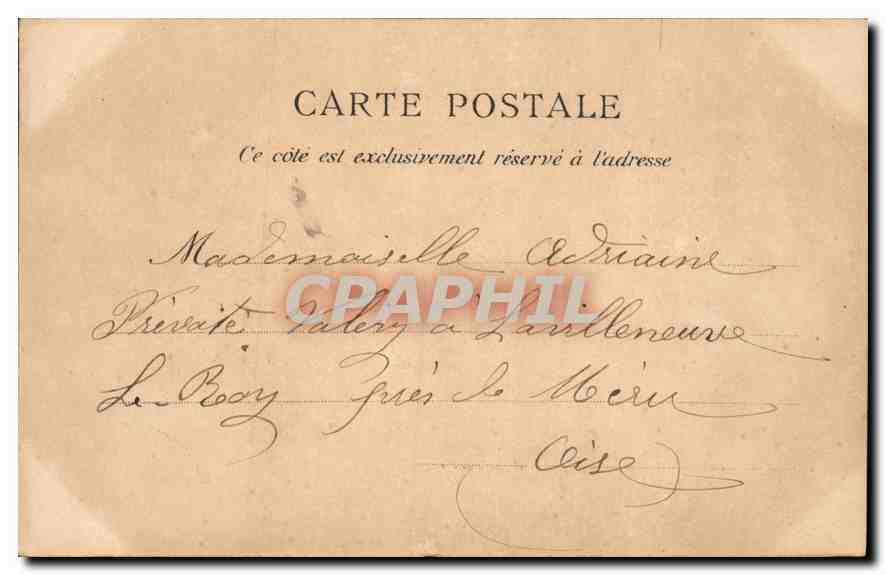 CARTE POSTALE
Ce côté est exclusivement réservé à l'adresse
Mademoiselle Adriaine
CPAPHIL
Prévaté Valéry à Lavilleneuve
Le Roy près de Méru
Oise